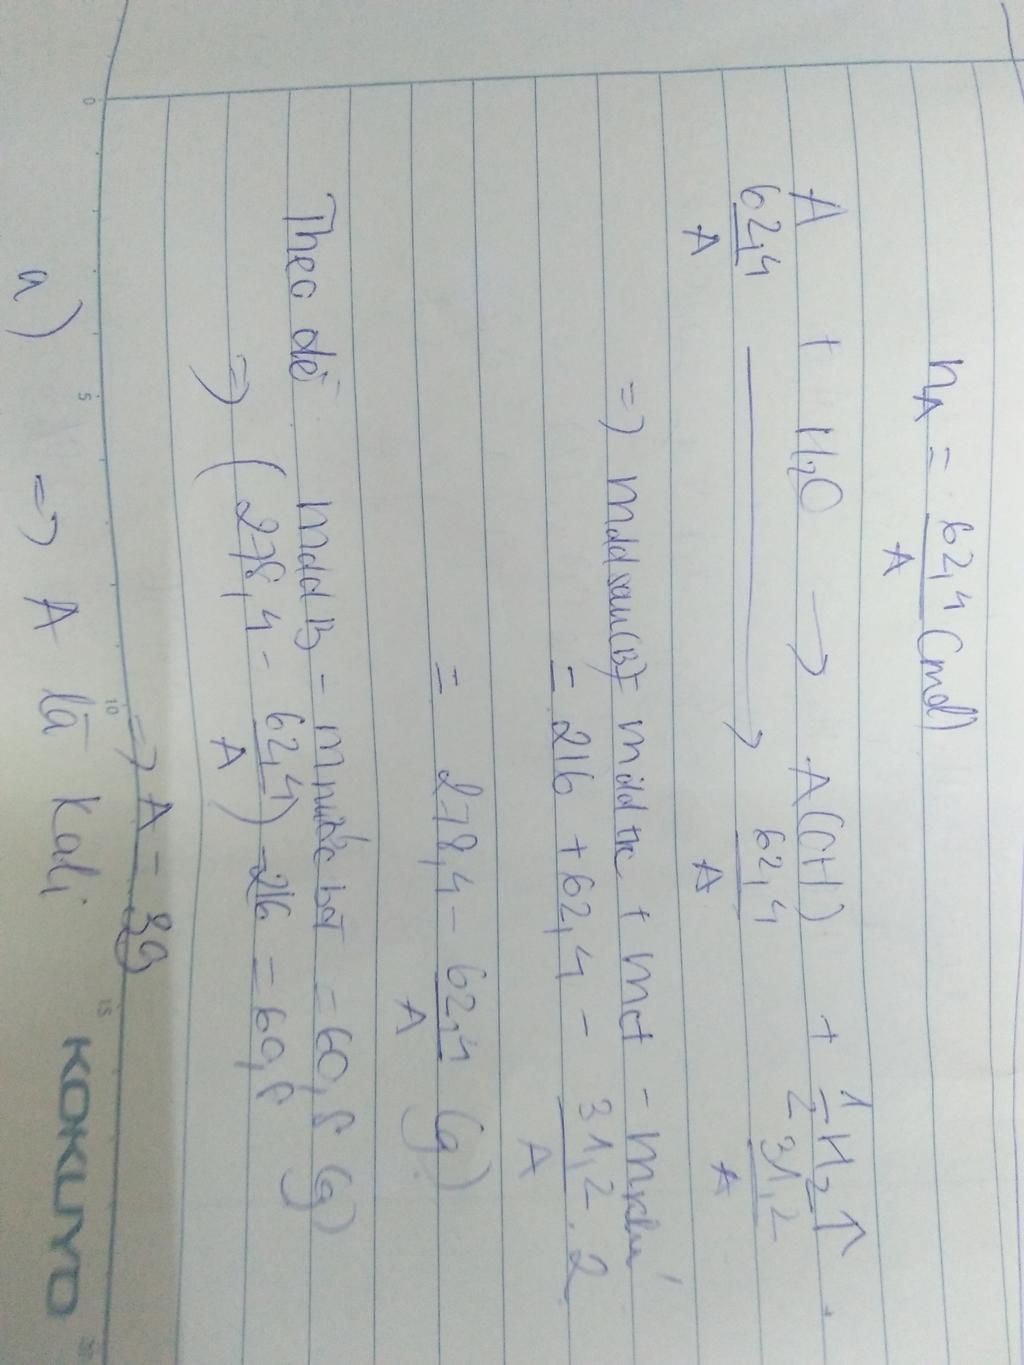 nA = 62,4/A (mol)
A + H2O → A(OH) + 1/2 H2↑
62,4/A → 62,4/A 31,2/A
=> mdd sau(B) = mdd trc + mct - mkhí
= 216 + 62,4 - 31,2/A . 2
= 278,4 - 62,4/A (g)
Theo đề mdd B - mnước bđ = 60,8 (g)
=> (278,4 - 62,4/A) - 216 = 60,8
=> A = 39
a) => A là Kali
0 5 10 15
KOKUYO